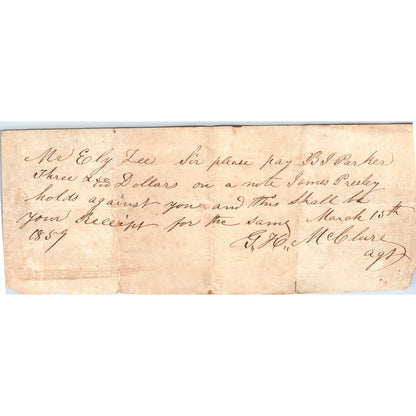 Mr Ely Lee Sir please pay B J Parker
Three & 50/100 Dollars on a note James Presley
holds against you and this Shall be
your Receipt for the same March 15th
1859 G. H. McClure
agt